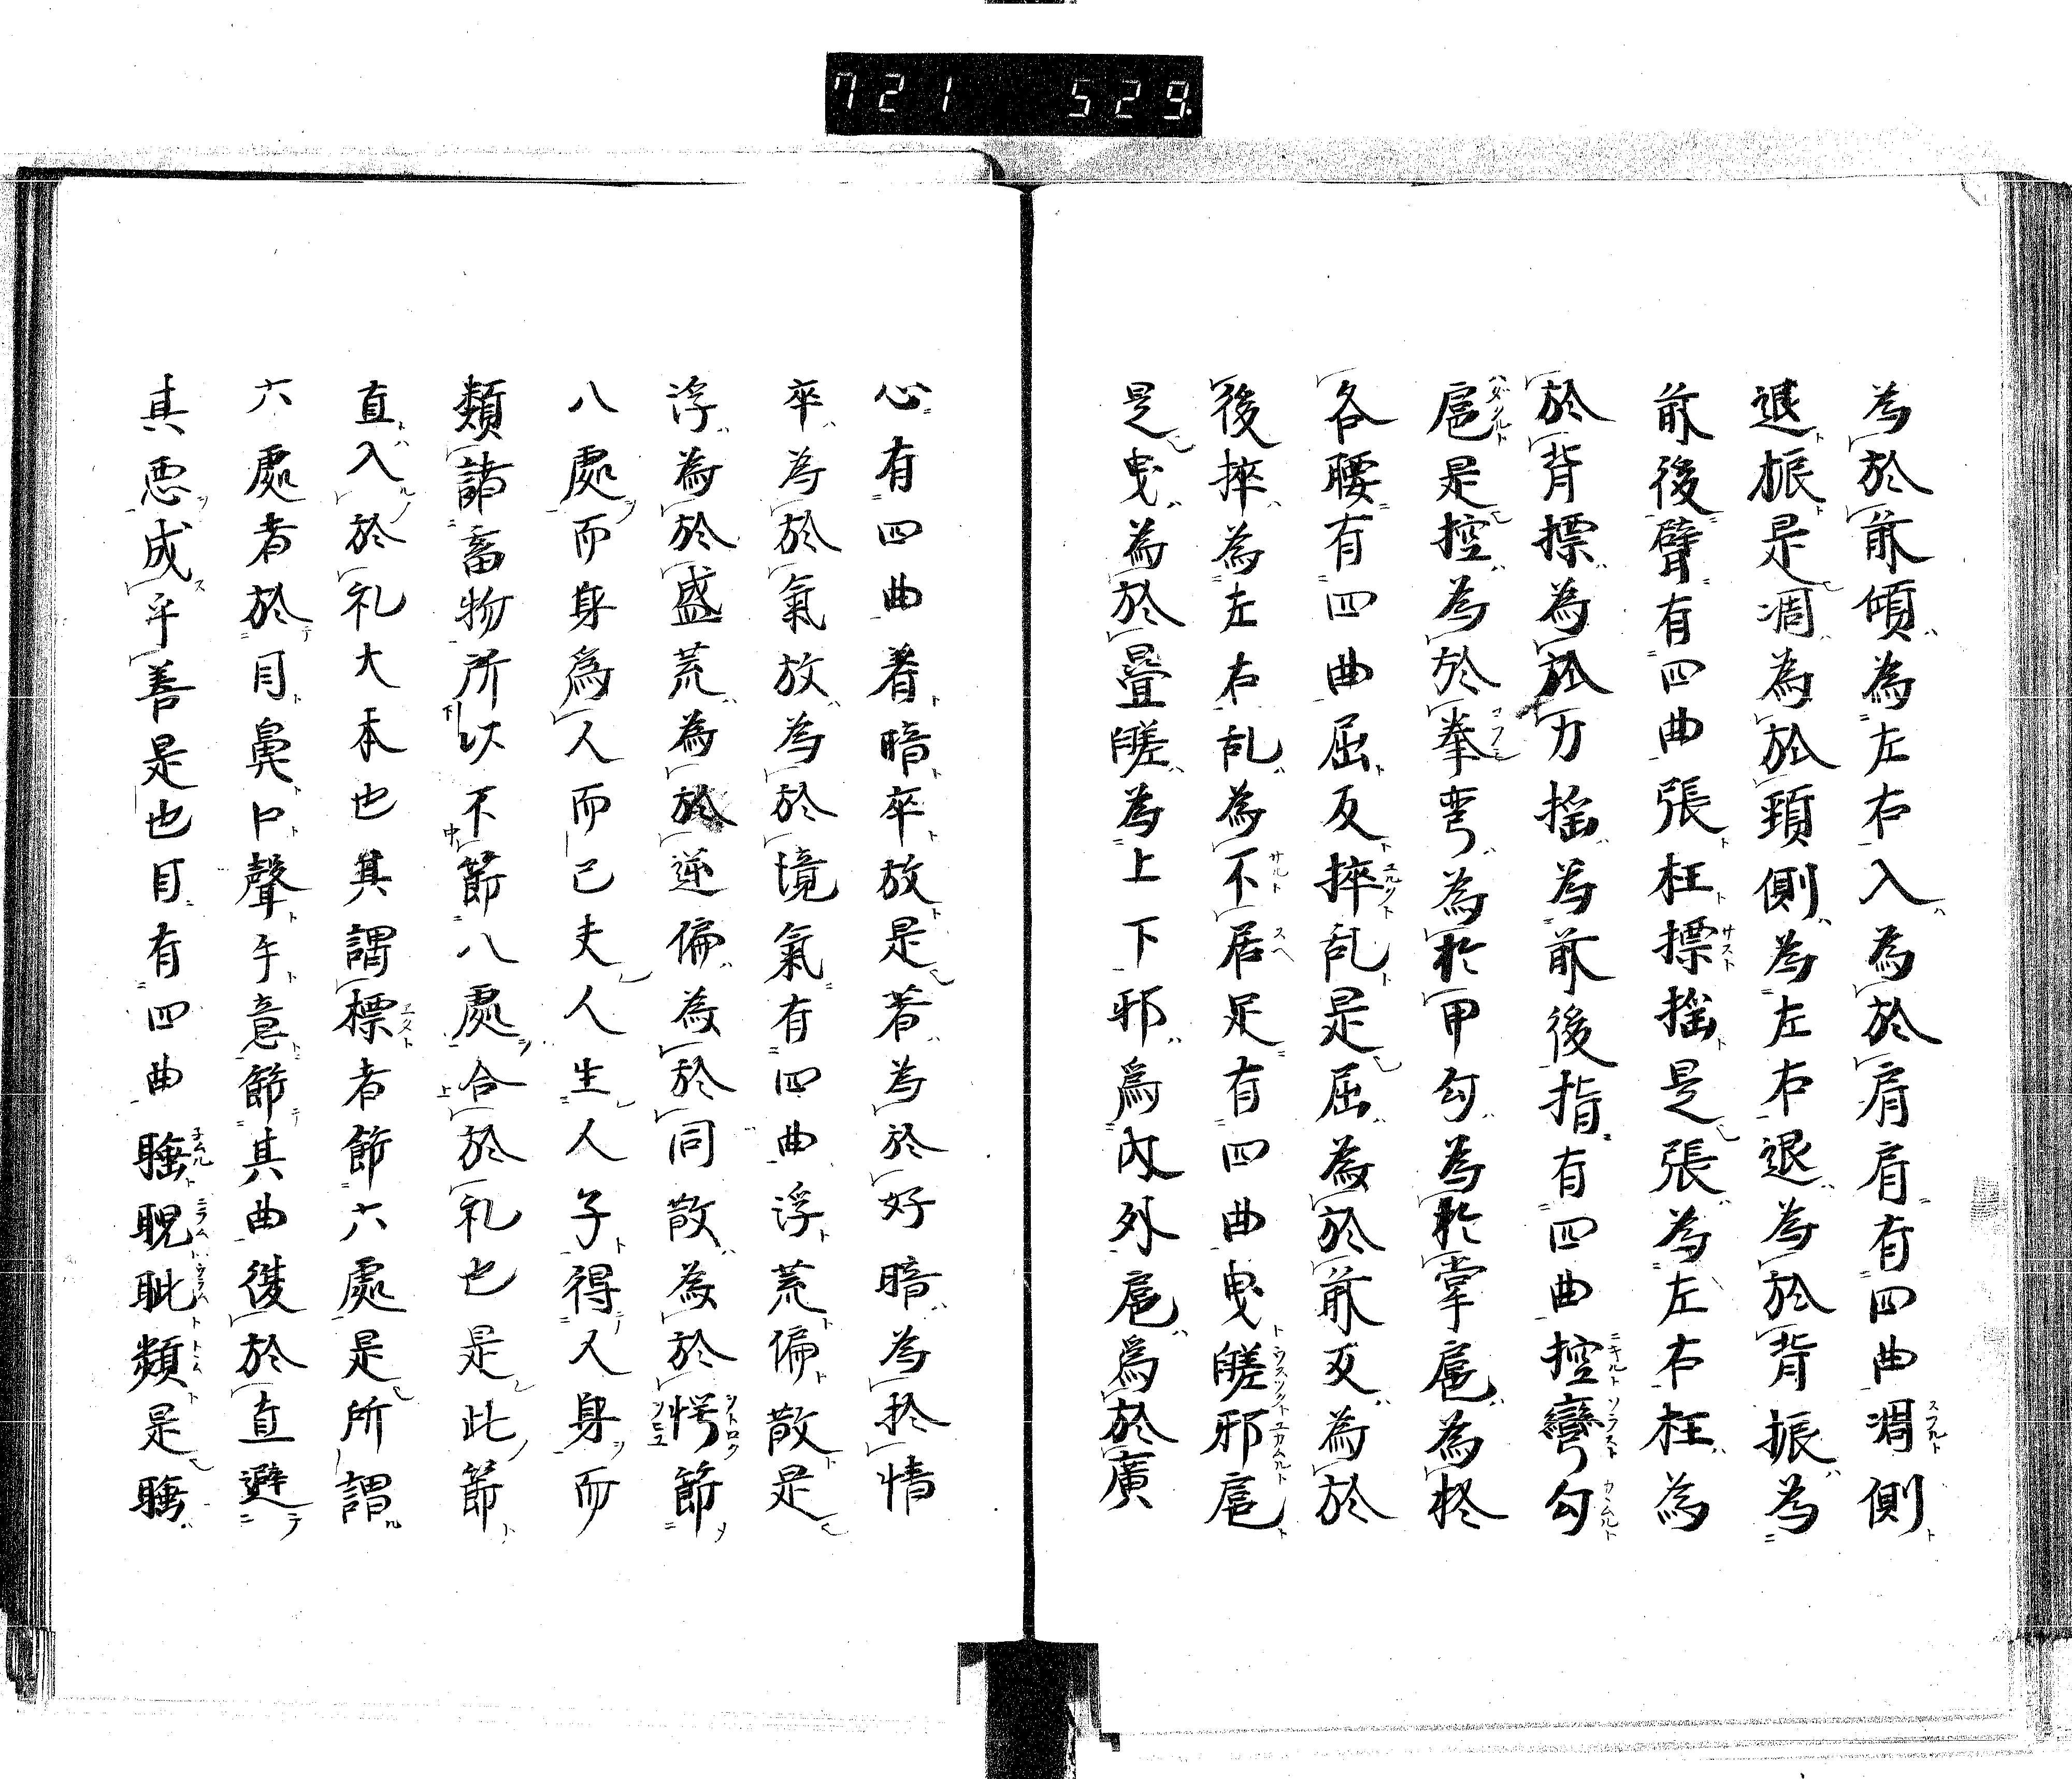 721 529
為於前傾為左右入為於肩肩有四曲凋側
退振是凋為於頚側為左右退為於背振為
前後臂有四曲張枉摽揺是張為左右枉為
於背摽為於力揺為前後指有四曲控彎勾
扈是控為於拳弯為於甲勾為於掌扈為柊
各腰有四曲屈反捽乱是屈為於前反為於
後捽為左右乱為不居足有四曲曳蹉邪扈
是曳為於疊蹉為上下邪為内外扈為於廣
心有四曲着暗卒放是着為於好暗為於情
卒為於氣放為於境氣有四曲浮荒偏散是
浮為於盛荒為於逆偏為於同散為於愕節
八處而身為人而已夫人生人子得人身而
類諸畜物所以不節八處合於礼也是此節
直入於礼大本也其謂標者節六處是所謂
六處者於目鼻口聲手意節其曲復於直避
其悪成乎善是也目有四曲睡睨眦類是睡